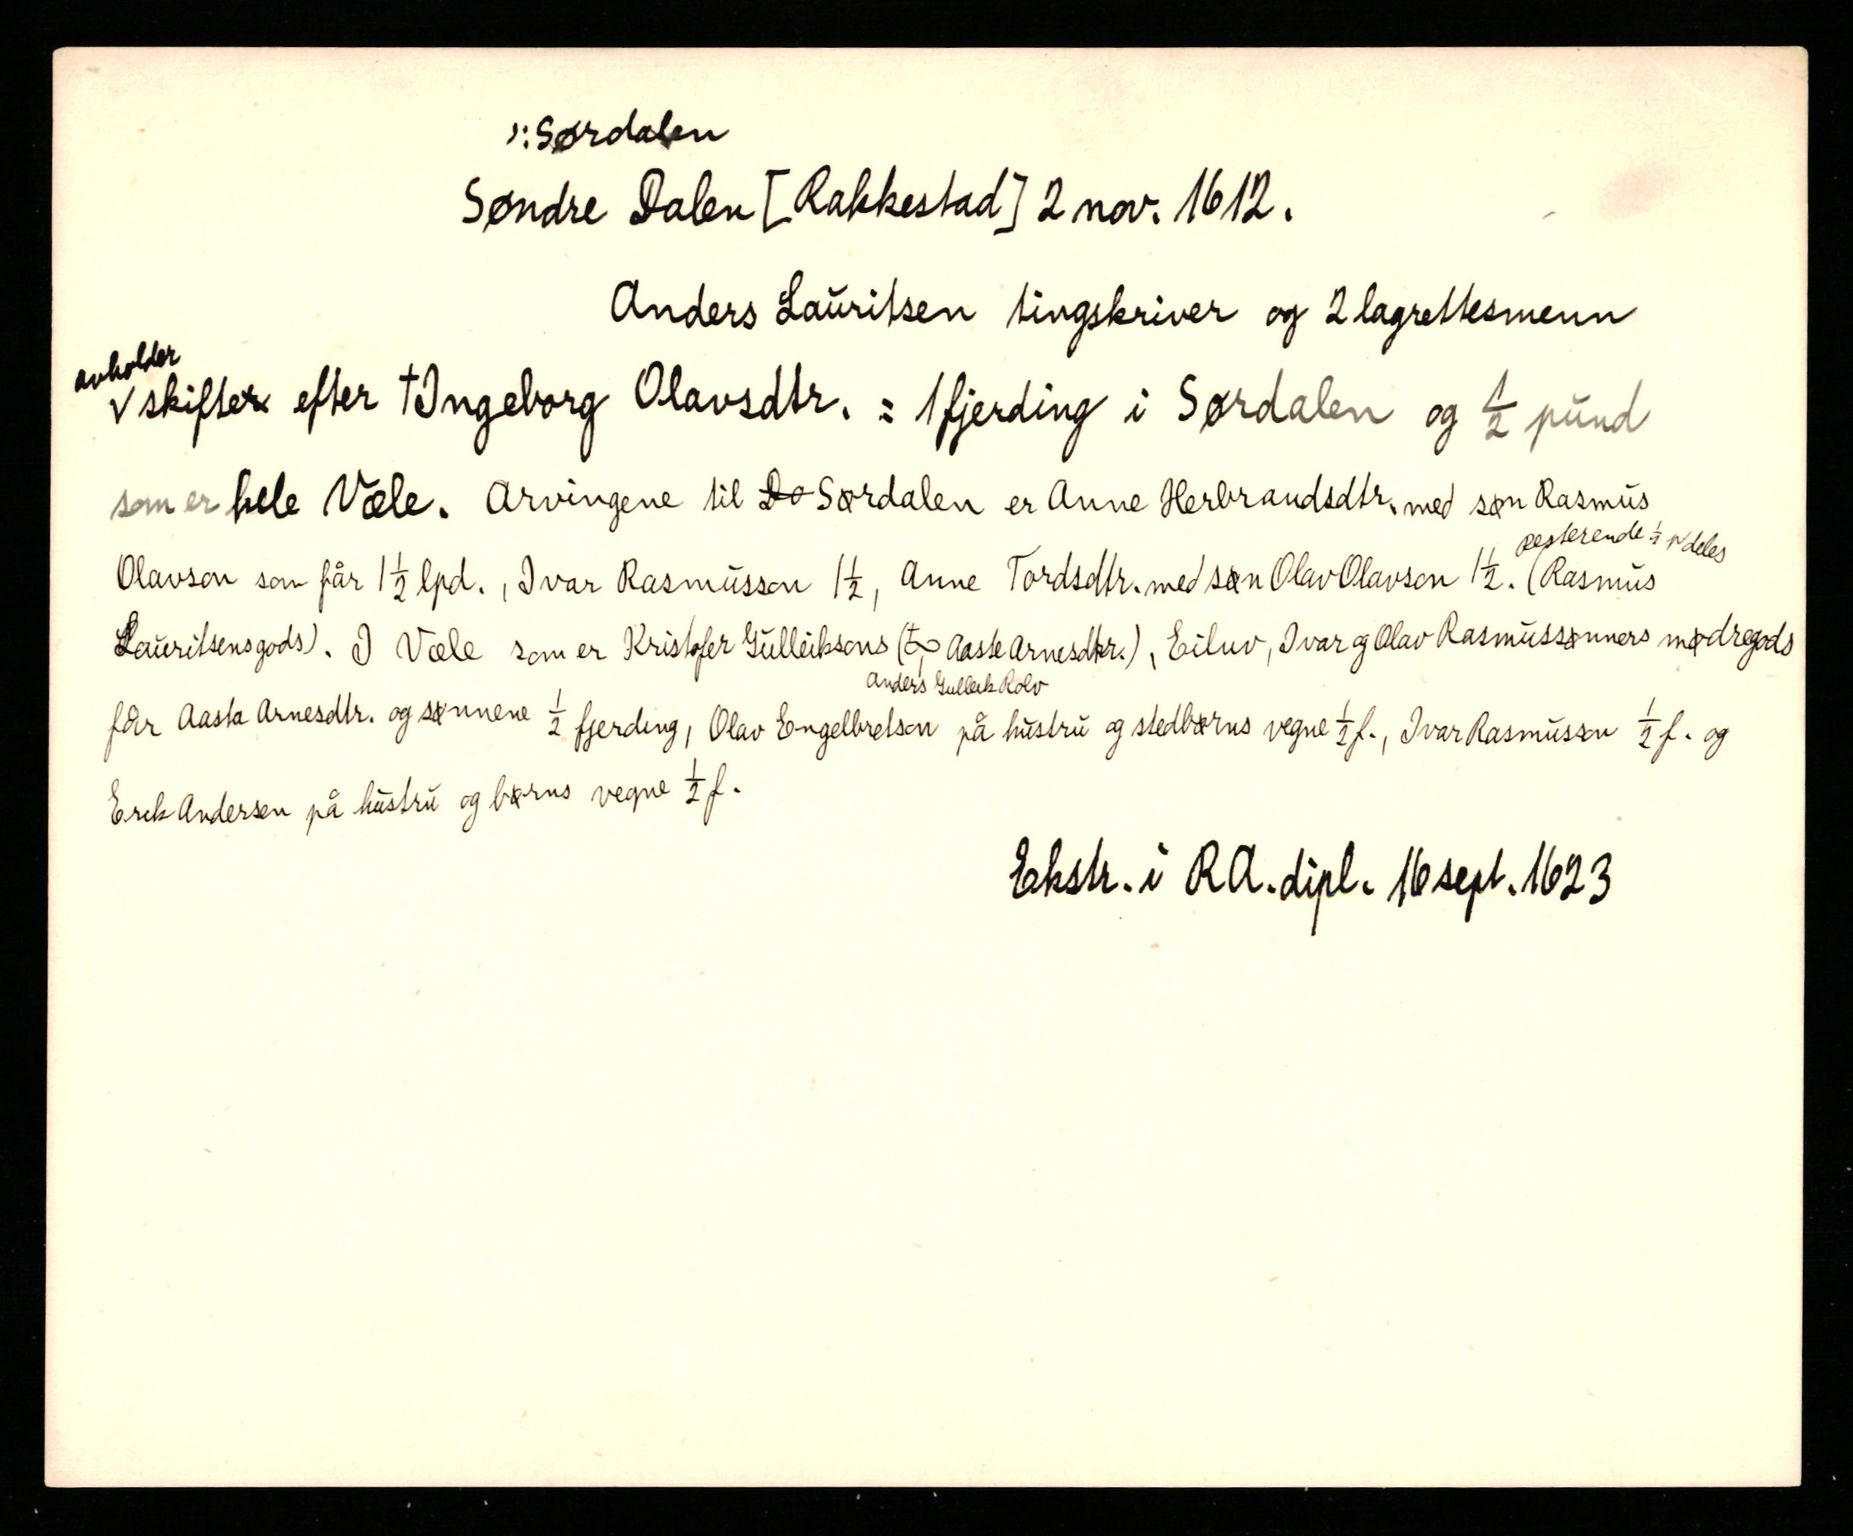 ɔ: Sørdalen
Søndre Dalen [Rakkestad] 2 nov. 1612.
Anders Lauritsen tingskriver og 2 lagrettesmenn
avholder
√ skifter efter † Ingeborg Olavsdtr. : 1 fjerding i Sørdalen og ½ pund
som er hele Væle. Arvingene til Do Sørdalen er Anne Herbrandsdtr. med søn Rasmus
resterende ½ p deles
Olavson som får 1½ lpd., Ivar Rasmusson 1½, Anne Tordsdtr. med søn Olav Olavson 1½. (Rasmus
Lauritsensgods). I Væle som er Kristofer Gulleiksons (‡ ∞ Aaste Arnesdtr.), Eiluv, Ivar og Olav Rasmussønners mødregods
Anders Gulleik Rolv
får Aasta Arnesdtr. og sønnene ½ fjerding, Olav Engelbretson på hustru og stedbørns vegne ½ f., Ivar Rasmusson ½ f. og
Erik Andersen på hustru og børns vegne ½ f.
Ekstr. i RA. dipl. 16 sept. 1623